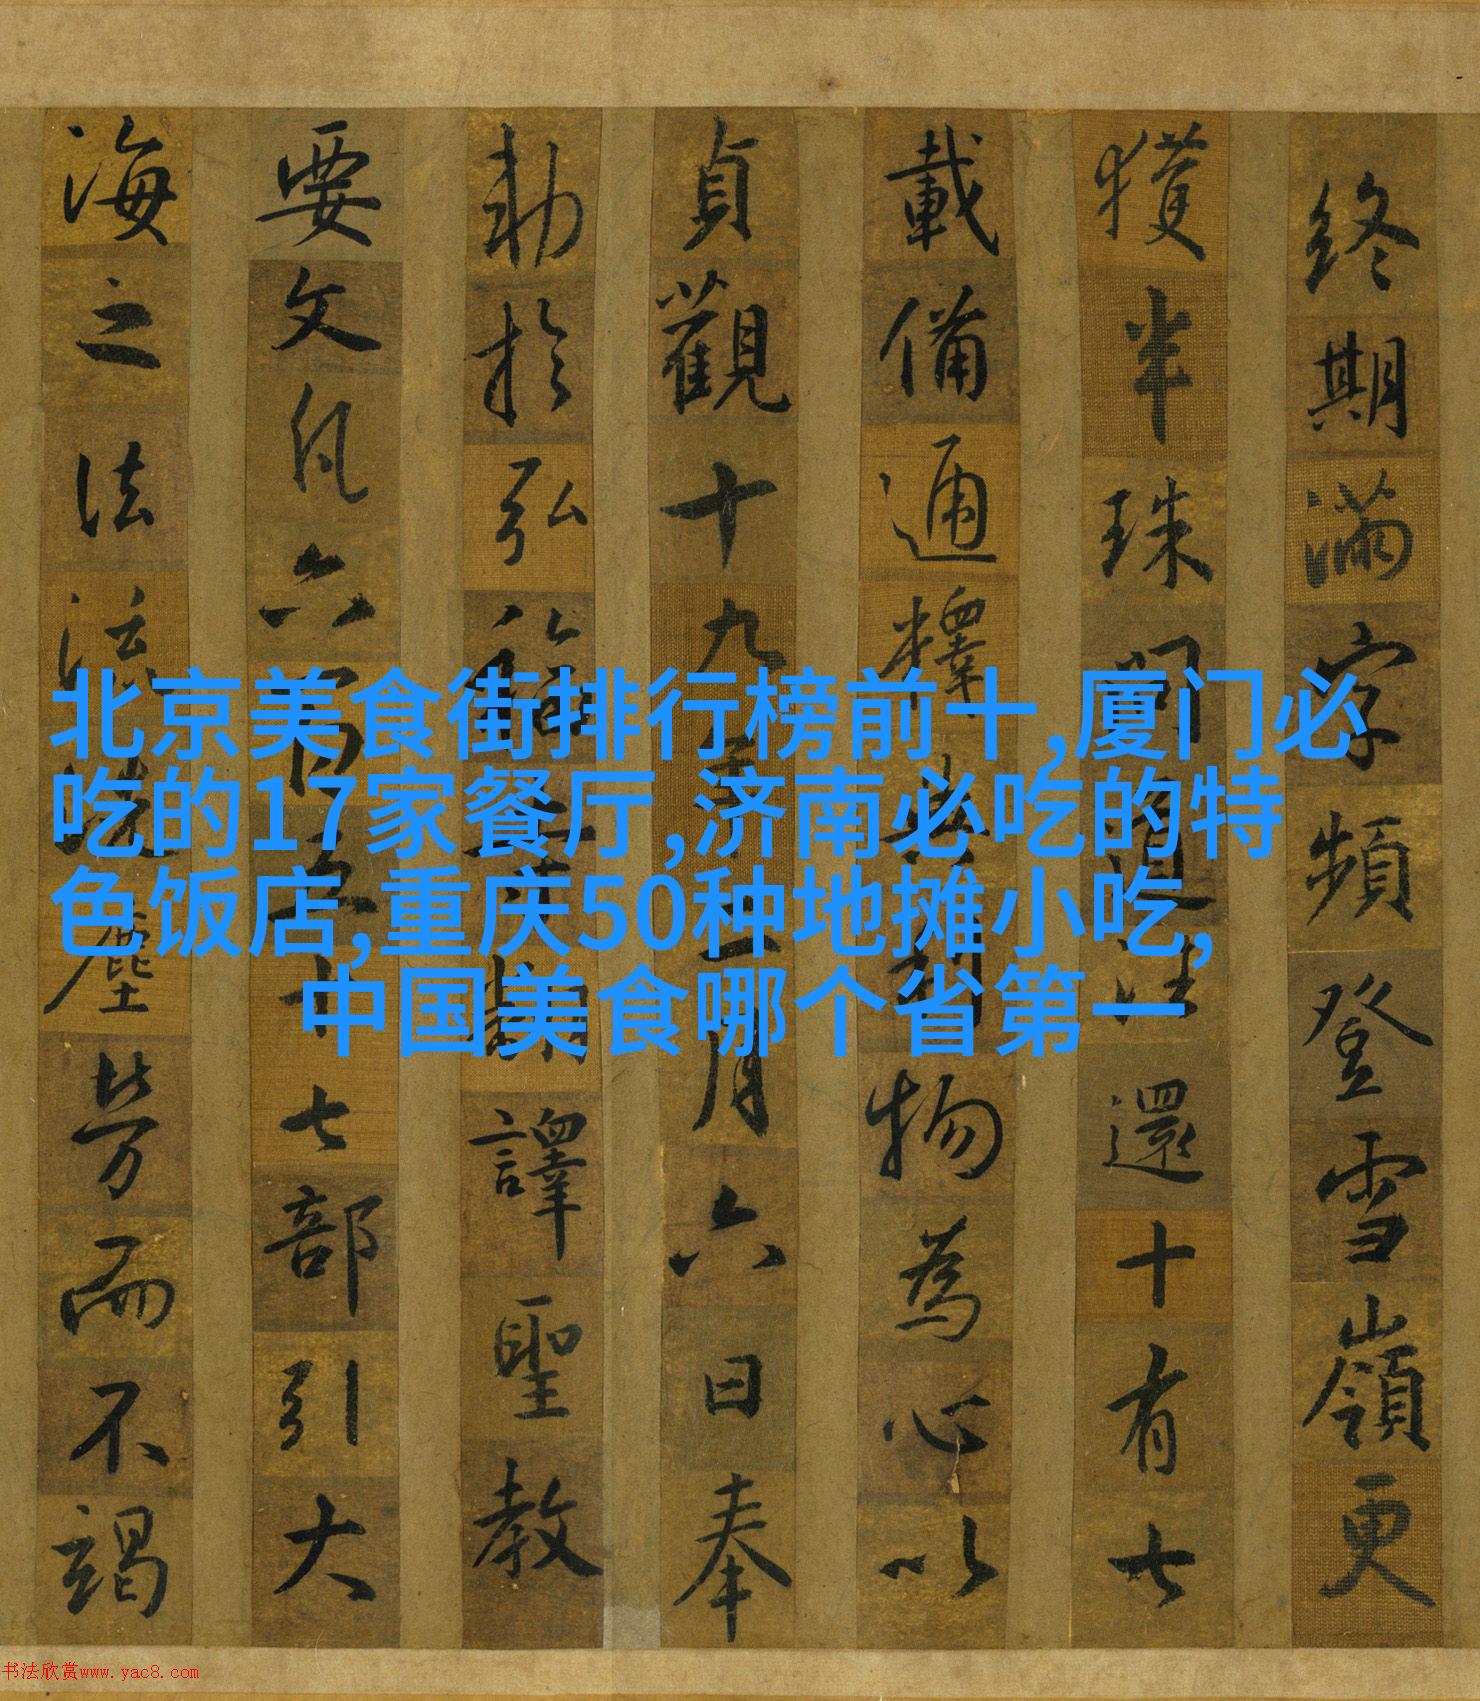 終期滿字頻登雪嶺更
獲半珠問道法還十有七
載備通釋典利物為心以
貞觀十九年二月六日奉
勅於弘福寺翻譯聖教
要文凡六百五十七部引大
海之法流洗塵勞而不竭
北京美食街排行榜前十,厦门必
吃的17家餐厅,济南必吃的特
色饭店,重庆50种地摊小吃,
中国美食哪个省第一
书法欣赏www.yac8.com